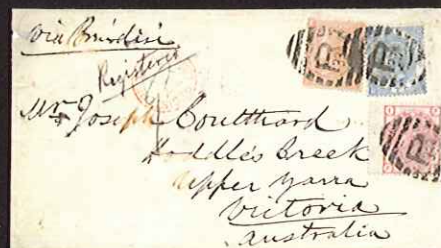 via Brindisi
Registered
Mr. Joseph Coulthard
Hoddles Creek
Upper Yarra
Victoria
Australia